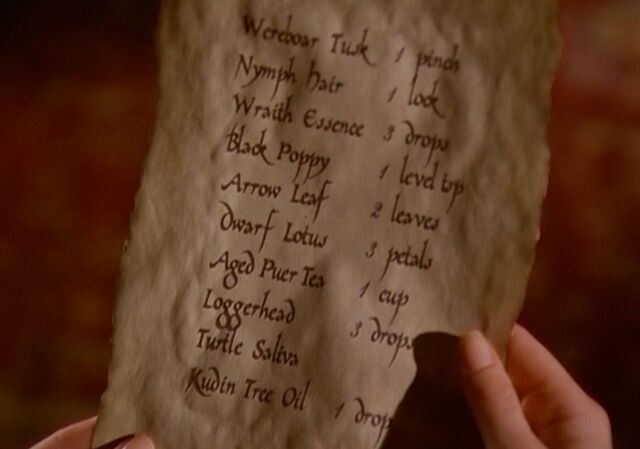 Wereboar Tusk 1 pinch
Nymph Hair 1 lock
Wraith Essence 3 drops
Black Poppy 1 level tsp
Arrow Leaf 2 leaves
Dwarf Lotus 3 petals
Aged Puer Tea 1 cup
Loggerhead 3 drops
Turtle Saliva
Kudin Tree Oil 1 drop